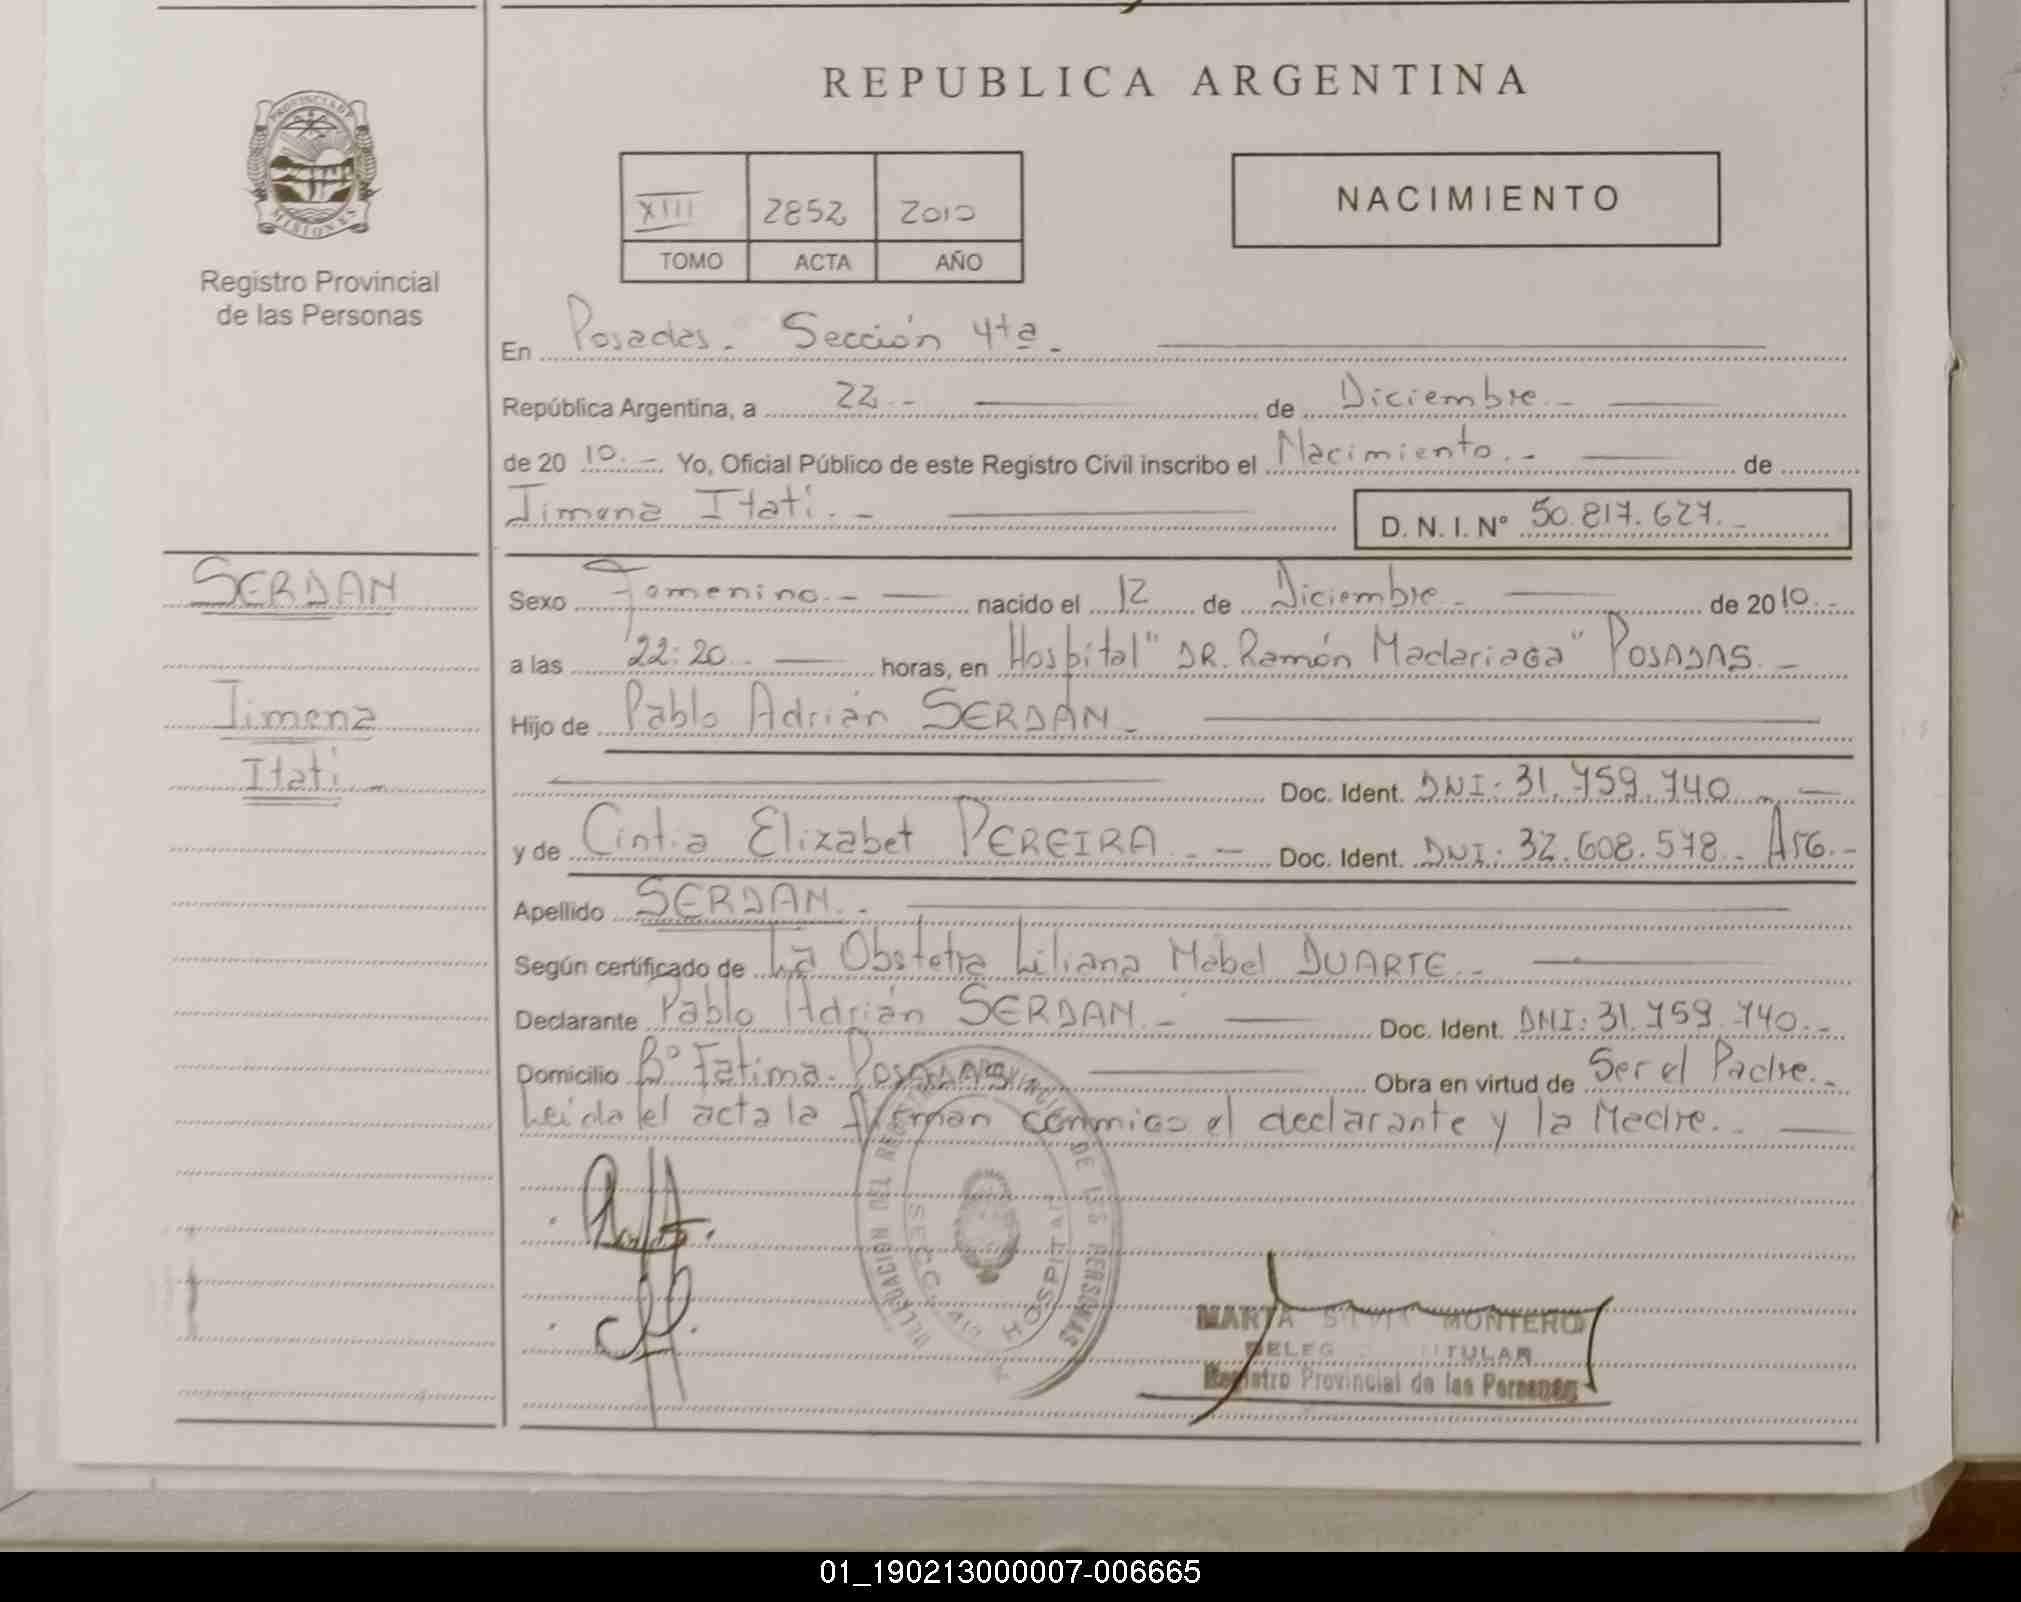 REPUBLICA ARGENTINA
PROVINCIA DE MISIONES
Registro Provincial
de las Personas
XIII 2852 2010
TOMO ACTA AÑO
NACIMIENTO
En Posadas. Sección 4ta.
República Argentina, a 22.- de Diciembre.-
de 20 10.- Yo, Oficial Público de este Registro Civil inscribo el Nacimiento.- de
Jimena Itatí.- D. N. I. Nº 50.817.627.-
SERDAN
Jimena
Itatí.-
Sexo Femenino.- nacido el 12 de Diciembre.- de 20 10.-
a las 22:20.- horas, en Hospital "DR. Ramón Madariaga" POSADAS.-
Hijo de Pablo Adrián SERDAN.-
Doc. Ident. DNI: 31.759.740.-
y de Cintia Elizabet PEREIRA.- Doc. Ident. DNI: 32.608.578.- Arg.-
Apellido SERDAN.-
Según certificado de La Obstetra Liliana Mabel DUARTE.-
Declarante Pablo Adrián SERDAN.- Doc. Ident. DNI: 31.759.740.-
Domicilio Bº Fatima. POSADAS Obra en virtud de Ser el Padre.-
Leída el acta la firman conmigo el declarante y la Madre.-
DE LAS PERSONAS
SECC.
HOSPITAL
MARTA SILVIA MONTERO
DELEG TITULAR
Registro Provincial de las Personas
01_190213000007-006665